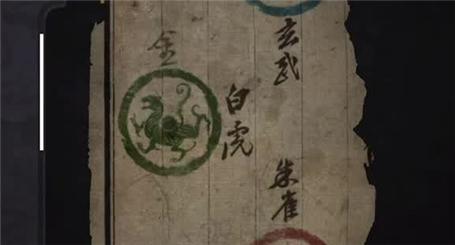 玄武
金
白虎
朱雀